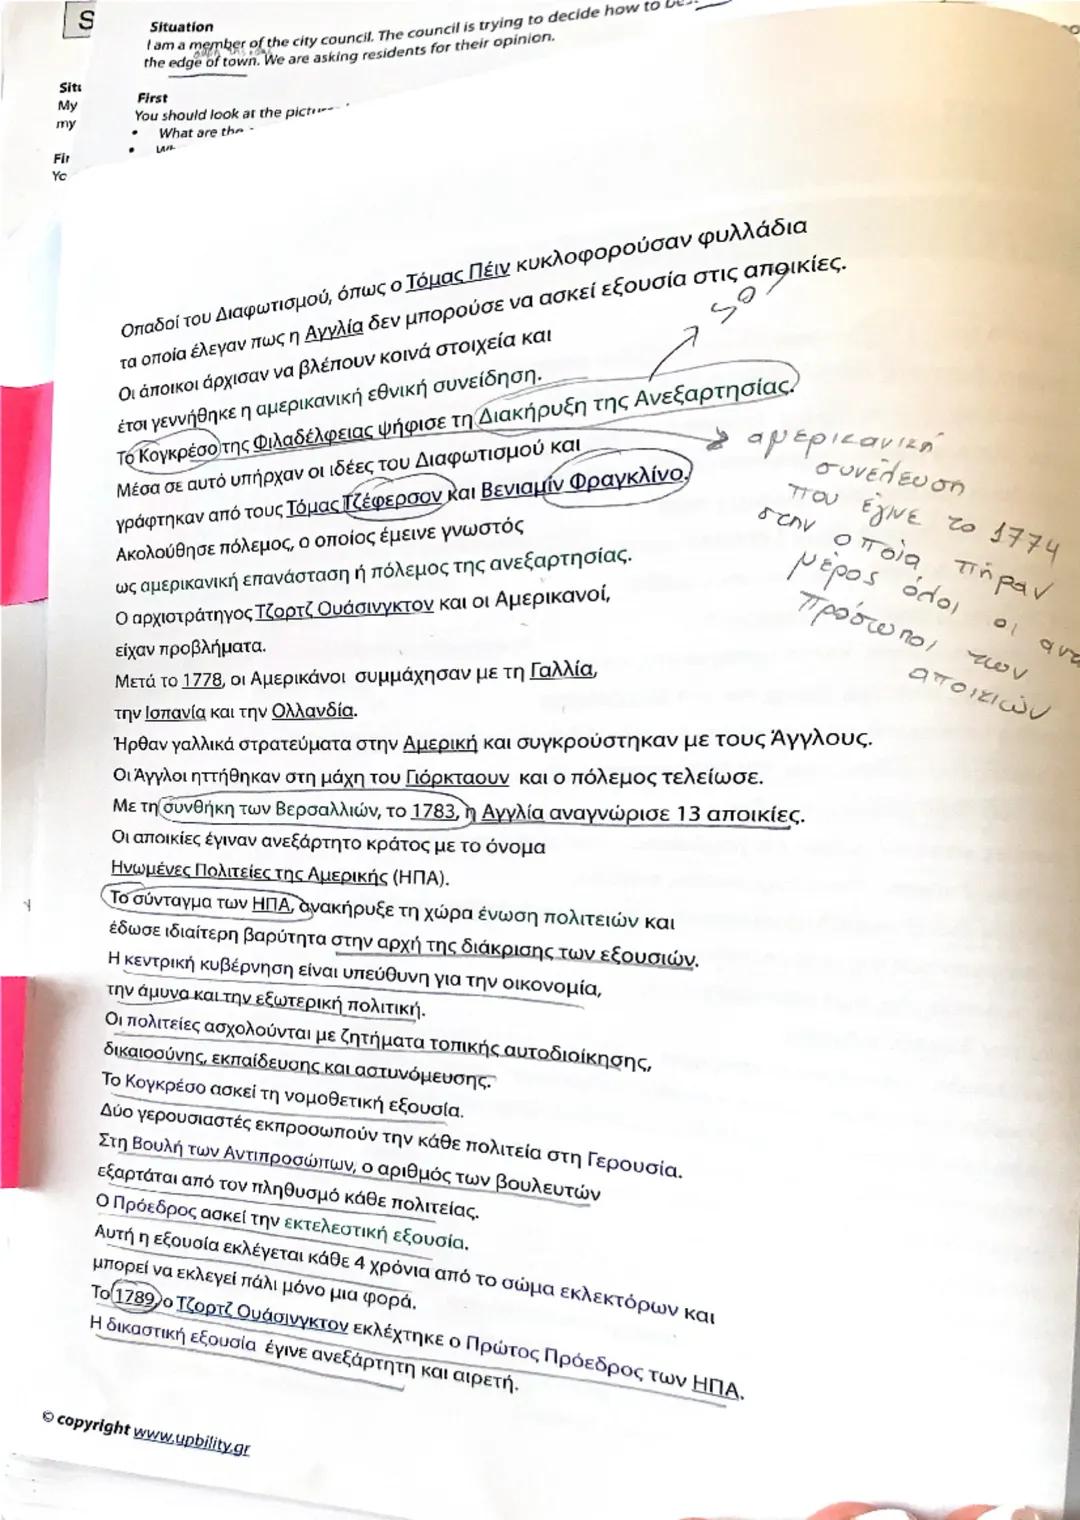 S
Situation
I am a member of the city council. The council is trying to decide how to
the edge of town. We are asking residents for their opinion.
Sit
My
my
First
You should look at the
What are the
Fir
Yo
Οπαδοί του Διαφωτισμού, όπως ο Τόμας Πέιν κυκλοφορούσαν φυλλάδια
τα οποία έλεγαν πως η Αγγλία δεν μπορούσε να ασκεί εξουσία στις αποικίες.
Οι άποικοι άρχισαν να βλέπουν κοινά στοιχεία και
έτσι γεννήθηκε η αμερικανική εθνική συνείδηση.
Το Κογκρέσο της Φιλαδέλφειας ψήφισε τη Διακήρυξη της Ανεξαρτησίας.
Μέσα σε αυτό υπήρχαν οι ιδέες του Διαφωτισμού και
γράφτηκαν από τους Τόμας Τζέφερσον και Βενιαμίν Φραγκλίνο.
Ακολούθησε πόλεμος, ο οποίος έμεινε γνωστός
ως αμερικανική επανάσταση ή πόλεμος της ανεξαρτησίας.
Ο αρχιστράτηγος Τζορτζ Ουάσινγκτον και οι Αμερικανοί,
είχαν προβλήματα.
Μετά το 1778, οι Αμερικάνοι συμμάχησαν με τη Γαλλία,
την Ισπανία και την Ολλανδία.
Ήρθαν γαλλικά στρατεύματα στην Αμερική και συγκρούστηκαν με τους Άγγλους.
Οι Άγγλοι ηττήθηκαν στη μάχη του Γιόρκταουν και ο πόλεμος τελείωσε.
Με τη συνθήκη των Βερσαλλιών, το 1783, η Αγγλία αναγνώρισε 13 αποικίες.
Οι αποικίες έγιναν ανεξάρτητο κράτος με το όνομα
Ηνωμένες Πολιτείες της Αμερικής (ΗΠΑ).
Το σύνταγμα των ΗΠΑ, ανακήρυξε τη χώρα ένωση πολιτειών και
έδωσε ιδιαίτερη βαρύτητα στην αρχή της διάκρισης των εξουσιών.
Η κεντρική κυβέρνηση είναι υπεύθυνη για την οικονομία,
την άμυνα και την εξωτερική πολιτική.
Οι πολιτείες ασχολούνται με ζητήματα τοπικής αυτοδιοίκησης,
δικαιοσύνης, εκπαίδευσης και αστυνόμευσης.
Το Κογκρέσο ασκεί τη νομοθετική εξουσία.
Δύο γερουσιαστές εκπροσωπούν την κάθε πολιτεία στη Γερουσία.
Στη Βουλή των Αντιπροσώπων, ο αριθμός των βουλευτών
εξαρτάται από τον πληθυσμό κάθε πολιτείας.
Ο Πρόεδρος ασκεί την εκτελεστική εξουσία.
Αυτή η εξουσία εκλέγεται κάθε 4 χρόνια από το σώμα εκλεκτόρων και
μπορεί να εκλεγεί πάλι μόνο μια φορά.
Το 1789 ο Τζορτζ Ουάσινγκτον εκλέχτηκε ο Πρώτος Πρόεδρος των ΗΠΑ.
Η δικαστική εξουσία έγινε ανεξάρτητη και αιρετή.
αμερικανική
συνέλευση
που έγινε το 1774
στην οποία πήραν
μέρος όλοι οι
πρόσωποι των
αποικιών
© copyright www.upbility.gr